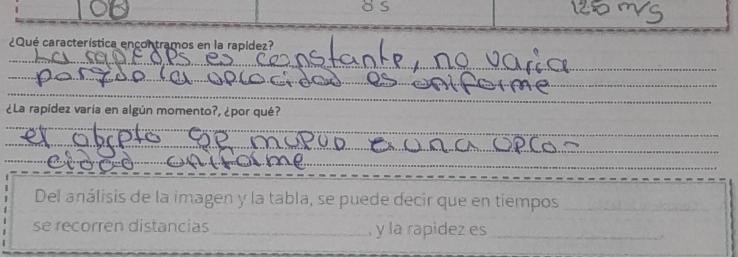 100 8 s 125 m/s
¿Qué característica encontramos en la rapidez?
La rapides es constante, no varia
la velocidad es uniforme
¿La rapidez varía en algún momento?, ¿por qué?
el objeto se mueve a una
uniforme
Del análisis de la imagen y la tabla, se puede decir que en tiempos ____________
se recorren distancias ____________, y la rapidez es ____________.